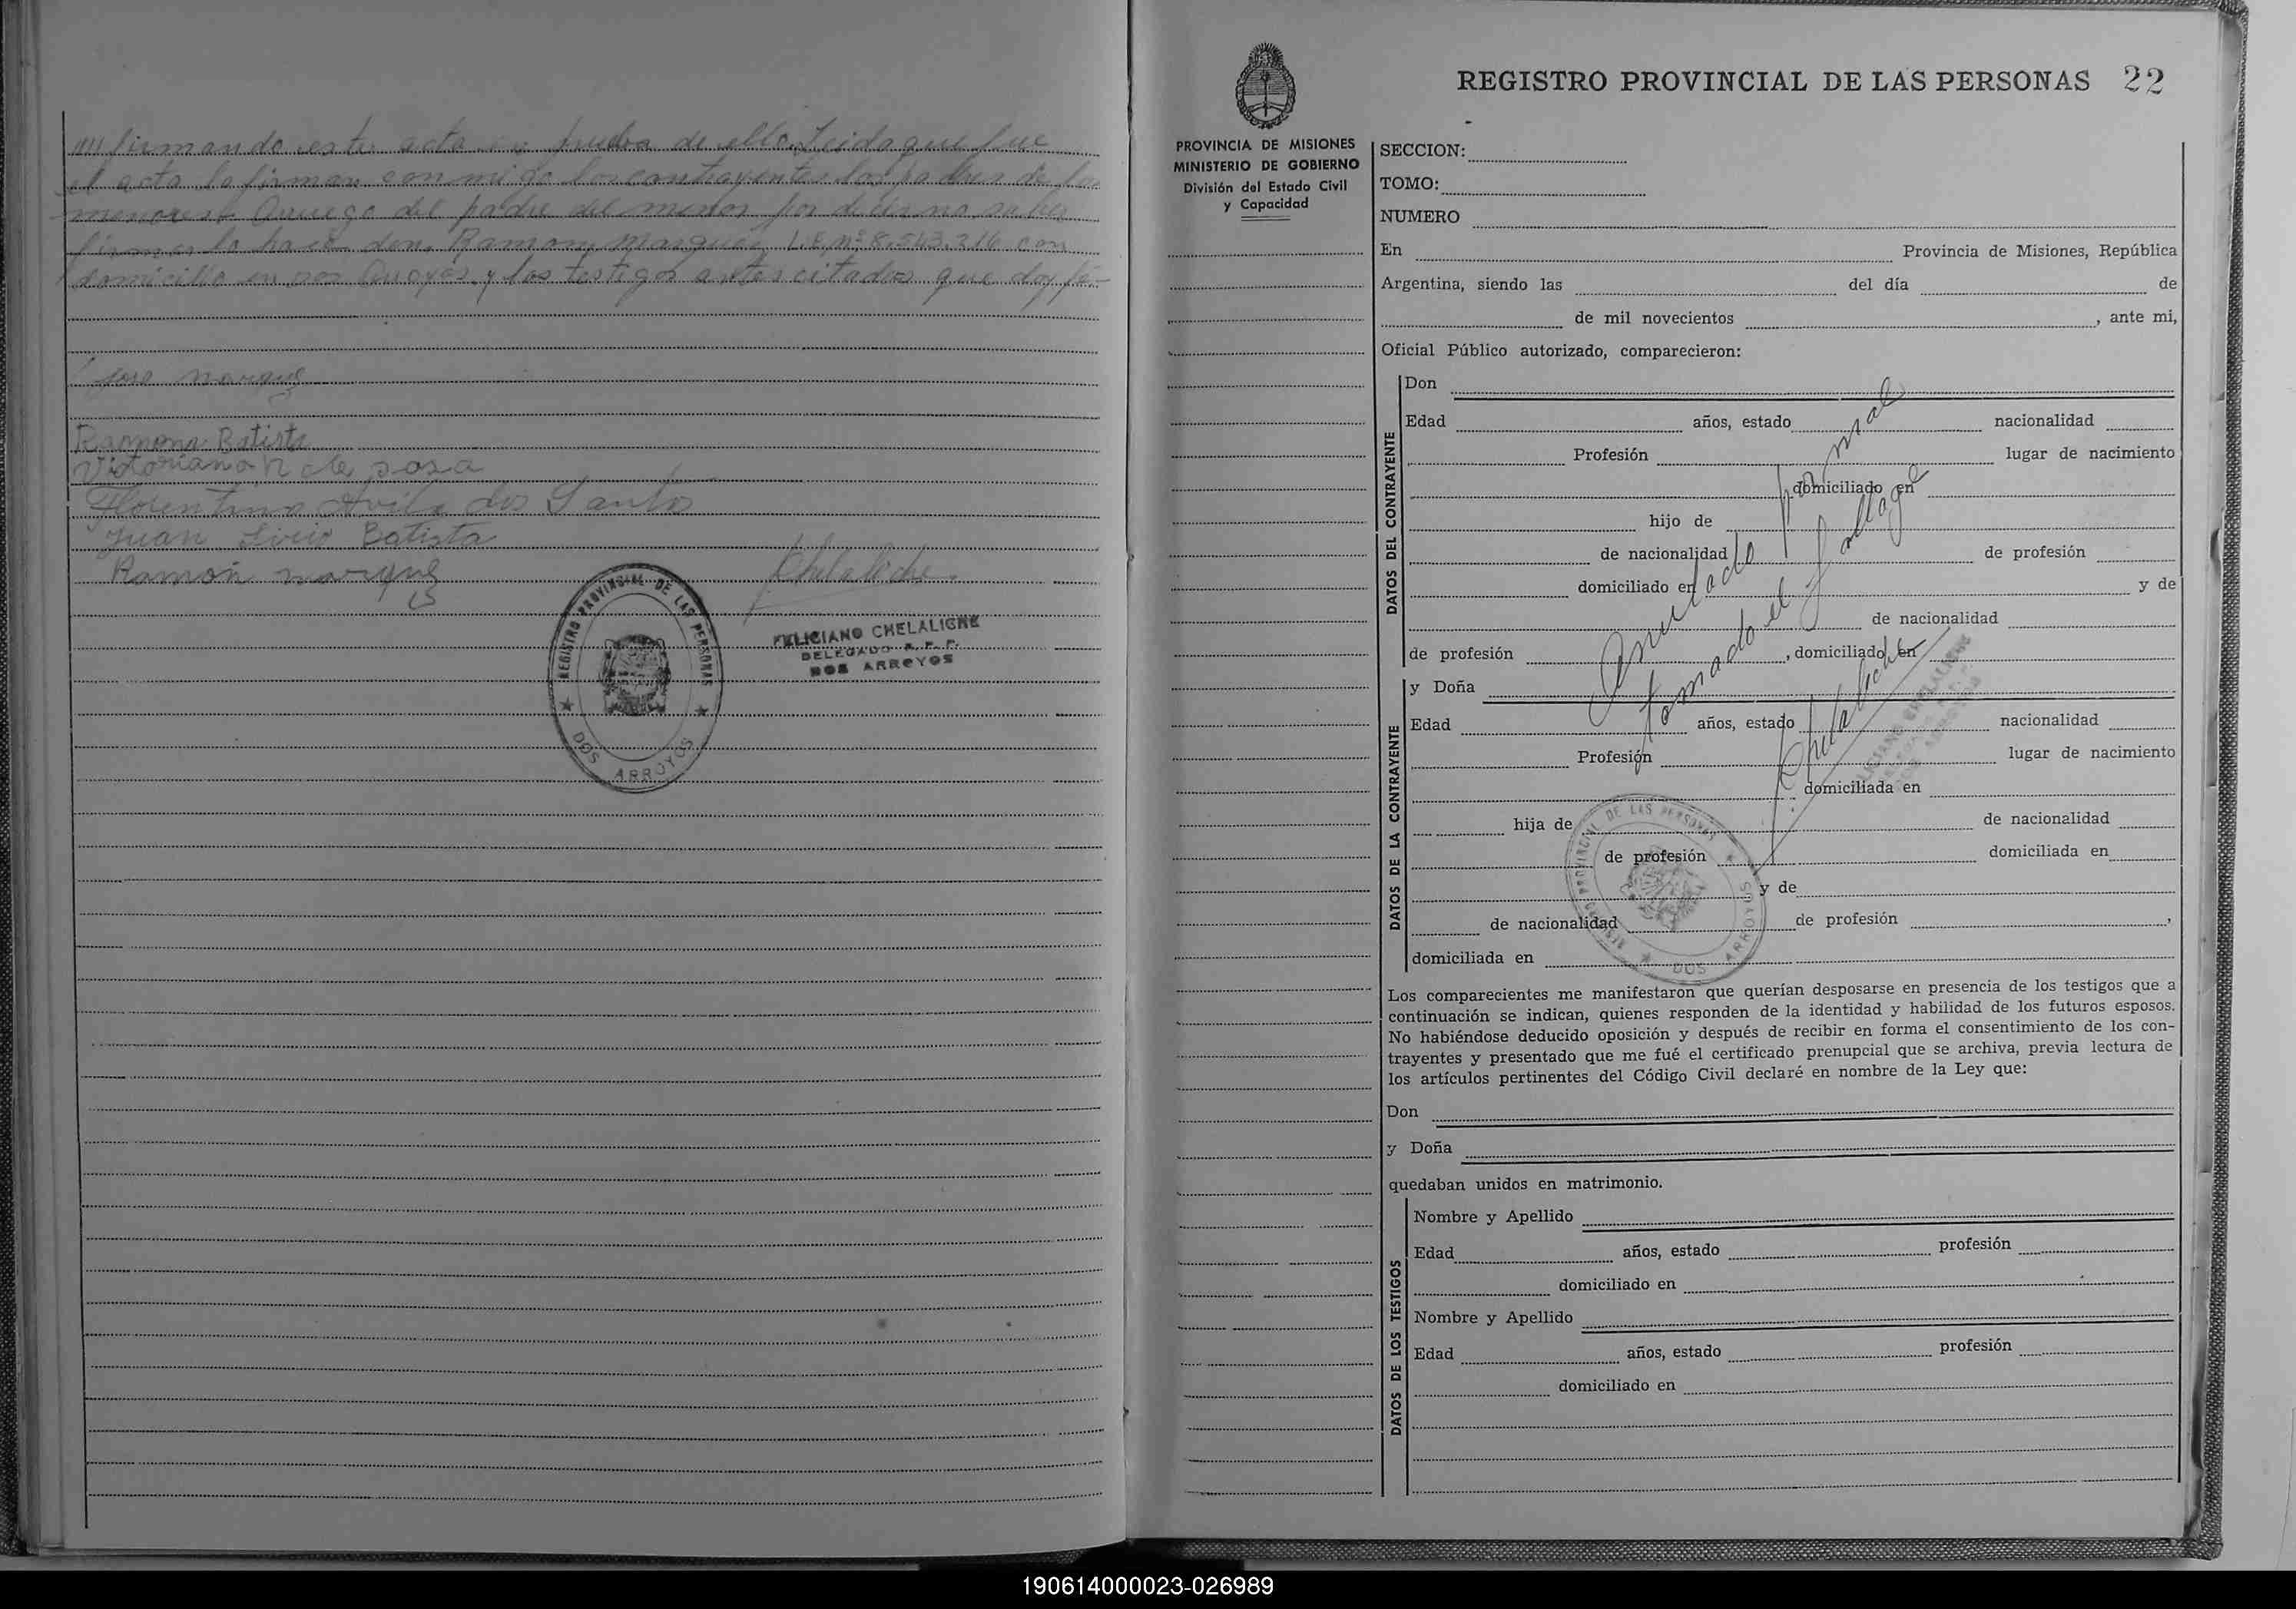 //// firmando este acta en prueba de ello. Leida que fue
el acta la firman con migo los contrayentes los padres de los
menores. A Ruego del padre del menor por decir no saber
firmar lo hace don Ramon Marquez L.E.Nº 8.543.216 con
domicilio en Dos Arroyos y los testigos antes citados que doy fé-
Jose marque
Ramona Batista
Victoriano R de sosa
Florentino Avila dos Santos
Juan Livio Batista
Ramon marques
Chelaliche
REGISTRO PROVINCIAL DE LAS PERSONAS
DOS ARROYOS
FELICIANO CHELALICHE
DELEGADO R. P. P.
DOS ARROYOS
REGISTRO PROVINCIAL DE LAS PERSONAS 22
PROVINCIA DE MISIONES
MINISTERIO DE GOBIERNO
División del Estado Civil
y Capacidad
SECCION:
TOMO:
NUMERO
En Provincia de Misiones, República
Argentina, siendo las del día de
de mil novecientos , ante mi,
Oficial Público autorizado, comparecieron:
DATOS DEL CONTRAYENTE
Don
Edad años, estado nacionalidad
Profesión lugar de nacimiento
domiciliado en
hijo de
de nacionalidad de profesión
domiciliado en y de
de nacionalidad
de profesión , domiciliado en
Anulado por mal
tomado el
Chelaliche
DATOS DE LA CONTRAYENTE
y Doña
Edad años, estado nacionalidad
Profesión lugar de nacimiento
domiciliada en
hija de de nacionalidad
de profesión domiciliada en
y de
de nacionalidad de profesión ,
domiciliada en
REGISTRO PROVINCIAL DE LAS PERSONAS
DOS ARROYOS
Los comparecientes me manifestaron que querían desposarse en presencia de los testigos que a
continuación se indican, quienes responden de la identidad y habilidad de los futuros esposos.
No habiéndose deducido oposición y después de recibir en forma el consentimiento de los con-
trayentes y presentado que me fué el certificado prenupcial que se archiva, previa lectura de
los artículos pertinentes del Código Civil declaré en nombre de la Ley que:
Don
y Doña
quedaban unidos en matrimonio.
DATOS DE LOS TESTIGOS
Nombre y Apellido
Edad años, estado profesión
domiciliado en
Nombre y Apellido
Edad años, estado profesión
domiciliado en
190614000023-026989